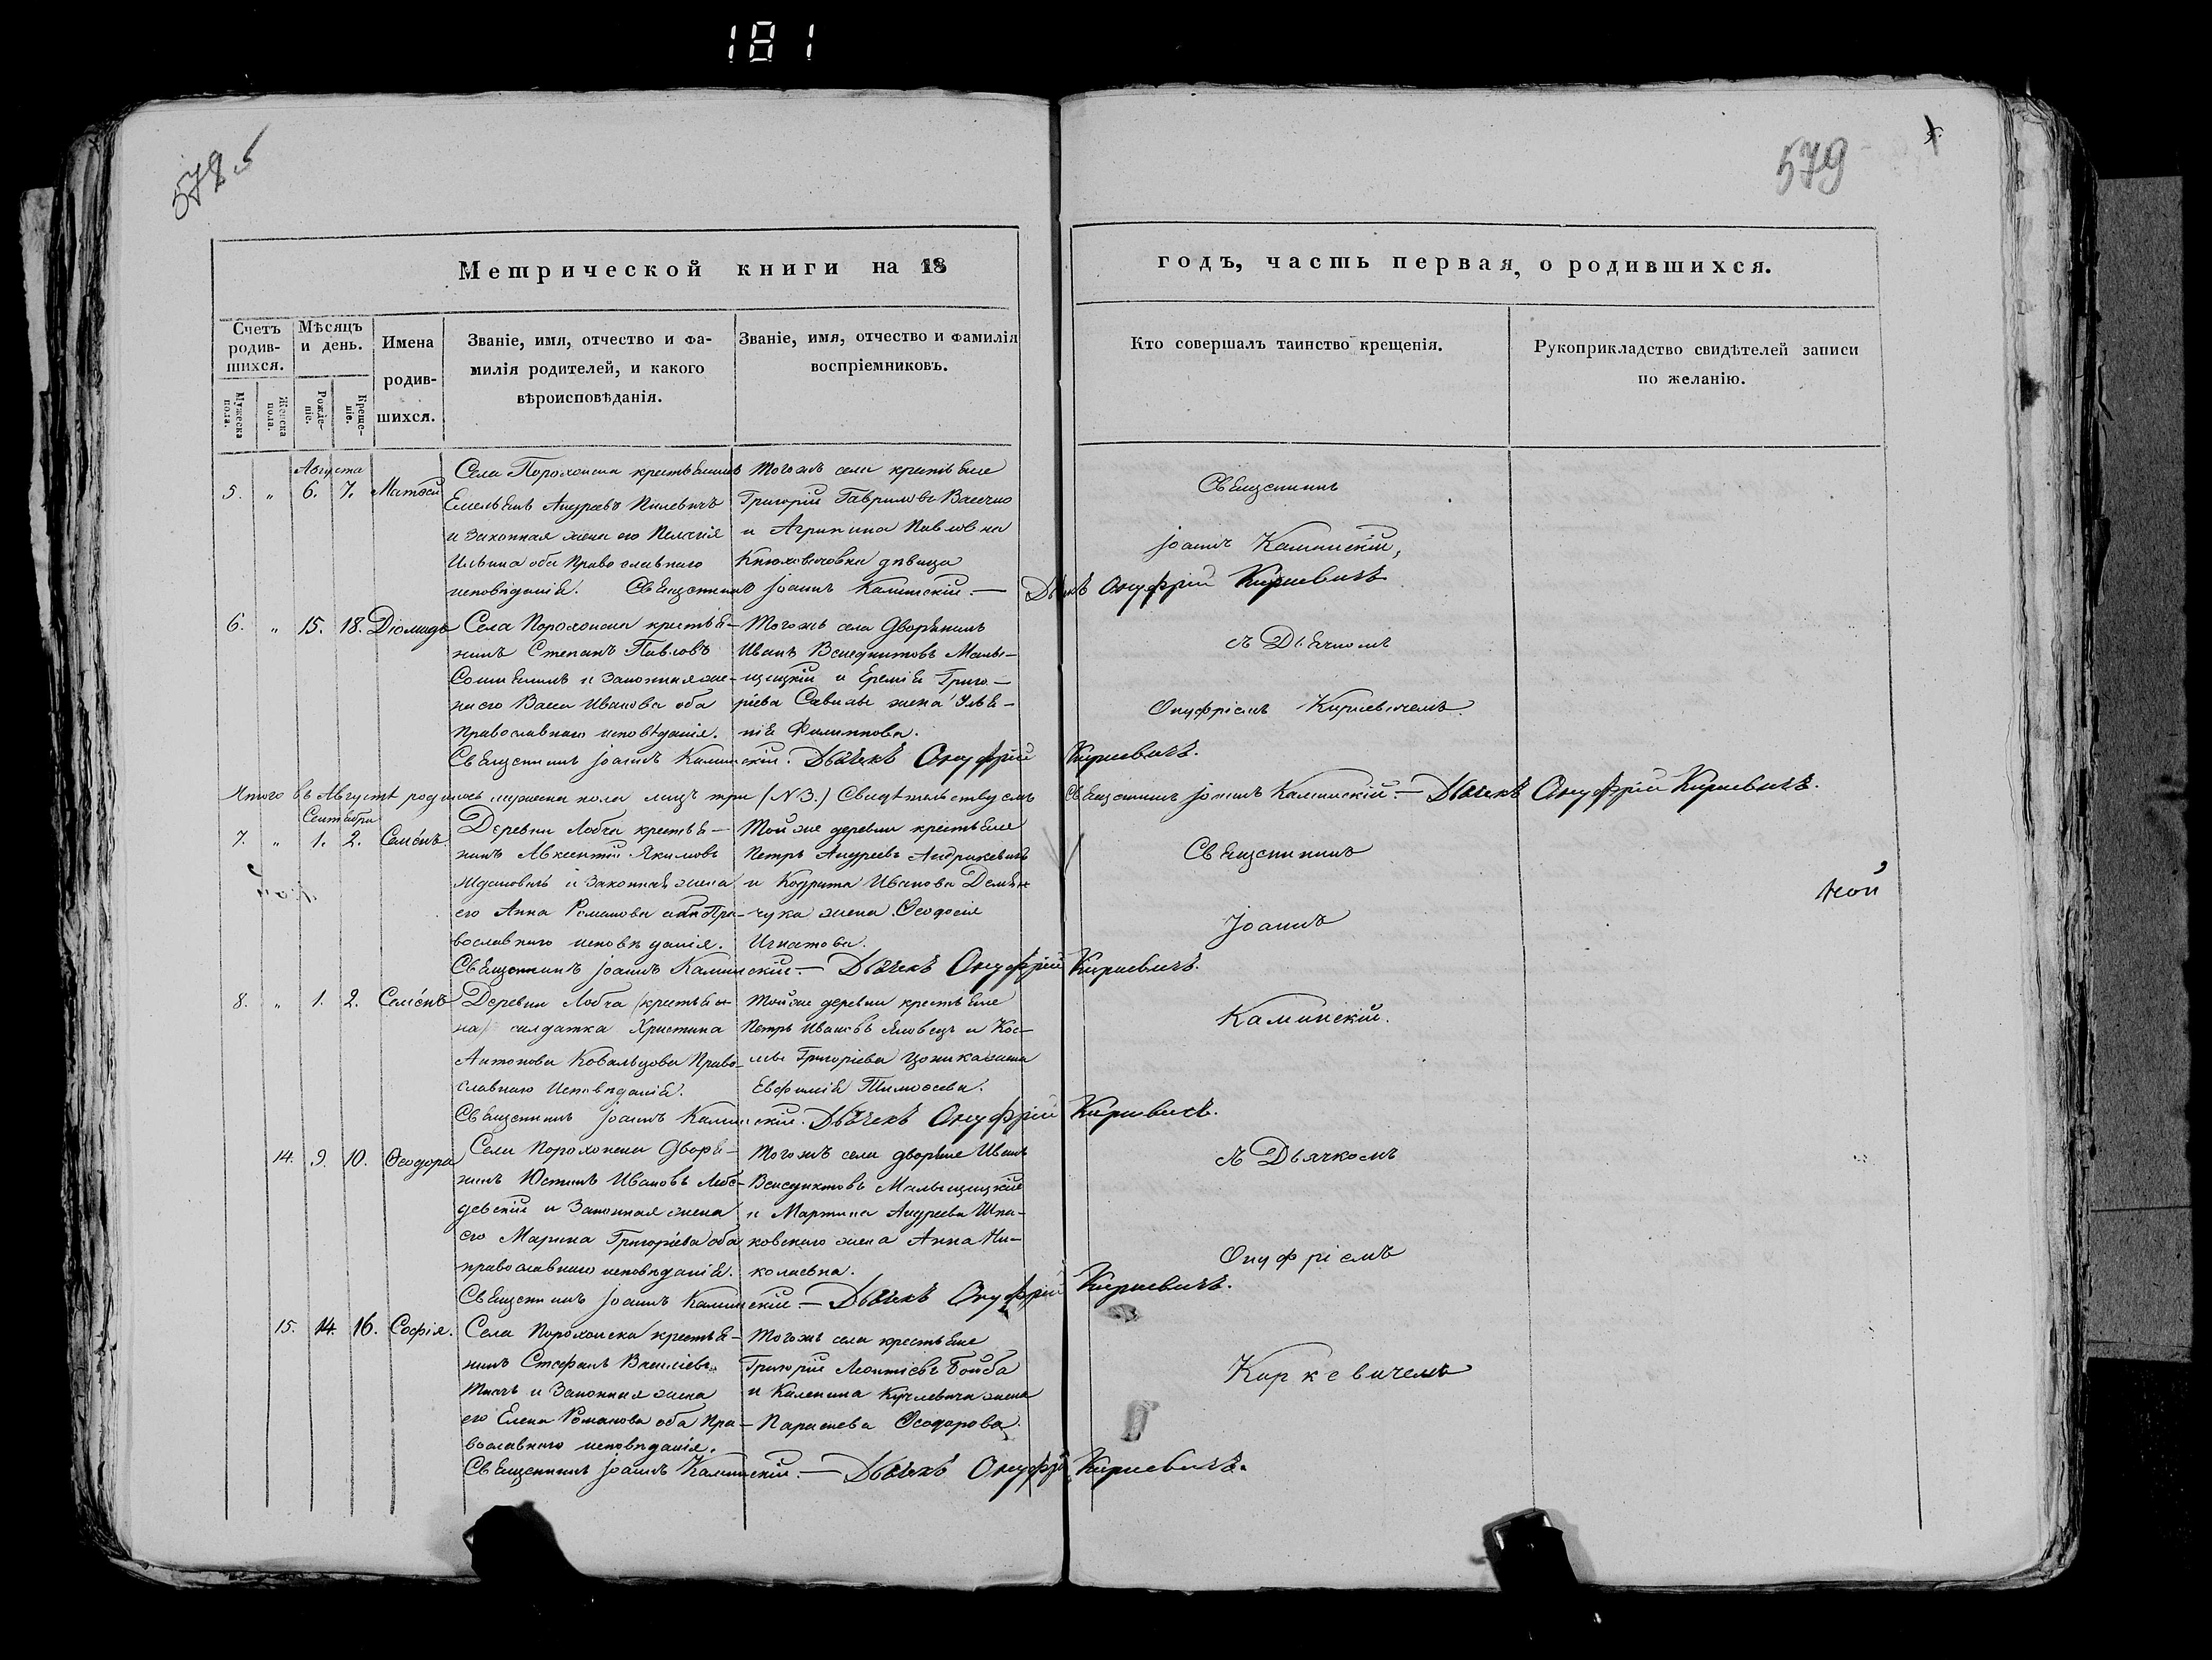 181
578.5
579
Метрической книги на 18
годъ, часть первая, о родившихся.
Счетъ родившихся.
Мужеска пола.
Женска пола.
Мѣсяцъ и день.
Рожденіе.
Крещеніе.
Имена родившихся.
Званіе, имя, отчество и фамилія родителей, и какого вѣроисповѣданія.
Званіе, имя, отчество и фамилія воспріемниковъ.
Кто совершалъ таинство крещенія.
Рукоприкладство свидѣтелей записи по желанію.
Августа
5. " 6. 7. Матѳей
Села Порохонска крестьянинъ
Емельянъ Андреевъ Пилевичъ
и законная жена его Пелагія
Ильина оба православнаго
исповѣданія.
Тогожъ села крестьяне
Григорій Гавриловъ
и Агрипина Павловна
дѣвица
Священникъ Іоаннъ Каминскій. — Дьякъ Онуфрій Киркевичъ
Священникъ
Іоаннъ Каминскій,
6. " 15. 18. Діомидъ
Села Порохонска крестья-
нинъ Степанъ Павловъ
и законная же-
на его Васса Иванова оба
православнаго исповѣданія.
Тогожъ села Дворянинъ
Иванъ Венедиктовъ Малы-
щицкій и Еремія Григо-
ріева жена Улья-
нія Филиппова.
Священникъ Іоаннъ Каминскій. Дьячекъ Онуфрій Киркевичъ.
съ Дьячкомъ
Онуфріемъ Киркевичемъ.
Итого въ Августѣ родилось мужеска пола лицъ три (N 3.) Свидѣтельствуемъ Священникъ Іоаннъ Каминскій. — Дьячекъ Онуфрій Киркевичъ.
Сентября
7. " 1. 2. Семенъ.
Деревни Лобча крестья-
нинъ Авксентій Якимовъ
Ждановичъ и законная жена
его Анна Романова оба Пра-
вославнаго исповѣданія.
Той же деревни крестьяне
Петръ Андреевъ
и Кодрата Иванова Демья-
чука жена Ѳеодосія
Игнатова.
Священникъ Іоаннъ Каминскій — Дьячекъ Онуфрій Киркевичъ.
Священникъ
Іоаннъ
ной
8. " 1. 2. Семенъ
Деревни Лобча (крестьян
ка) салдатка Христина
Антонова Ковальцова Право-
славнаго исповѣданія.
Той же деревни крестьяне
Петръ Ивановъ Яловецъ и Кос-
мы Григоріева жена
Евфимія Тимоѳеева.
Священникъ Іоаннъ Каминскій. Дьячекъ Онуфрій Киркевичъ.
Каминскій.
14. 9. 10. Ѳеодора
Села Порохонска Дворя-
нинъ Юстинъ Ивановъ Лебе-
девскій и Законная жена
его Марина Григоріева оба
православнаго исповѣданія.
Тогожъ села дворяне Иванъ
Венедиктовъ Малыщицкій
и Мартина Андреева Шпа-
ковскаго жена Анна Ни-
колаевна.
Священникъ Іоаннъ Каминскій — Дьячекъ Онуфрій Киркевичъ.
съ Дьячкомъ
Онуфріемъ
15. 14. 16. Софія.
Села Порохонска крестья-
нинъ Стефанъ Васильевъ
Ткачъ и Законная жена
его Елена Романова оба Пра-
вославнаго исповѣданія.
Тогожъ села крестьяне
Григорій Леонтіевъ
и жена
Параскева Ѳеодорова
Священникъ Іоаннъ Каминскій. — Дьячекъ Онуфрій Киркевичъ.
Киркевичемъ